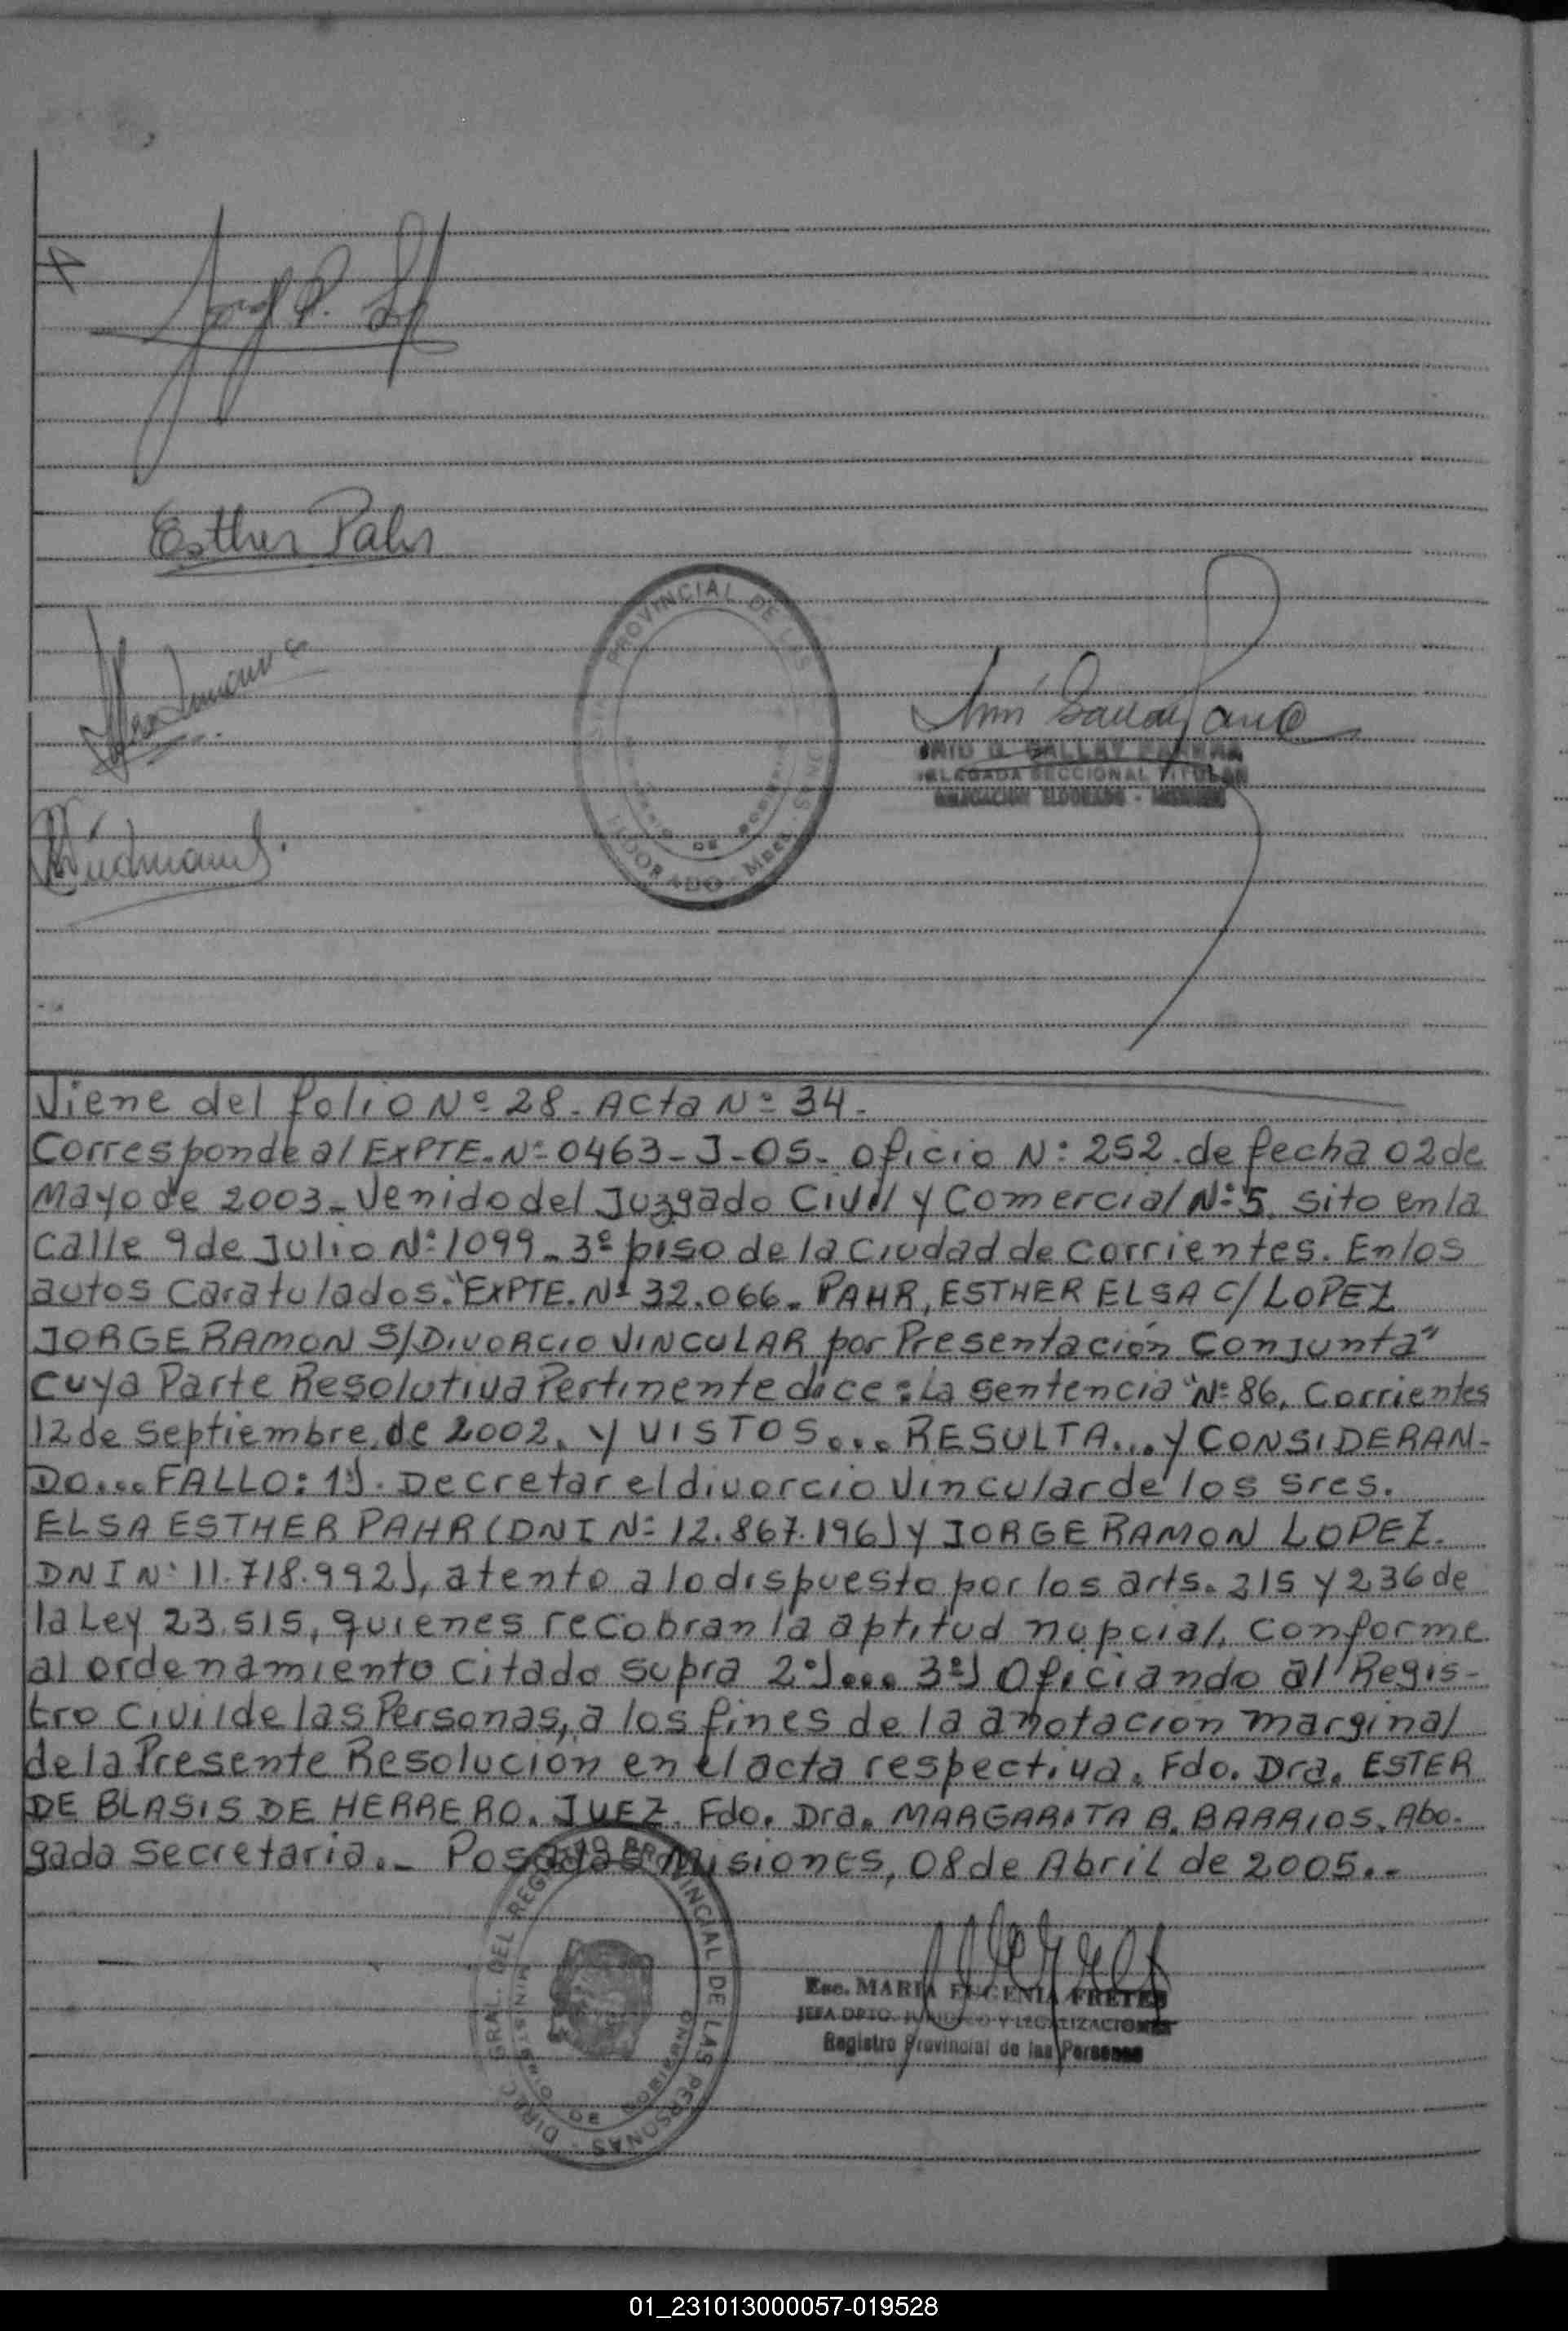 Esther Pahr
PROVINCIAL DE LAS
DE
ELDORADO - Mnes.
DELEGADA SECCIONAL TITULAR
DELEGACION ELDORADO - MISIONES
Viene del folio Nº 28. Acta Nº 34.
Corresponde al EXPTE. Nº 0463-J-05. Oficio Nº 252. de fecha 02 de
Mayo de 2003. Venido del Juzgado Civil y Comercial Nº 5. sito en la
Calle 9 de Julio Nº 1099. 3º piso de la Ciudad de Corrientes. En los
autos Caratulados. "EXPTE. Nº 32.066. PAHR, ESTHER ELSA C/ LOPEZ
JORGE RAMON S/DIVORCIO VINCULAR por Presentación Conjunta"
Cuya Parte Resolutiva Pertinente dice: La Sentencia "Nº 86, Corrientes
12 de septiembre de 2002. y VISTOS... RESULTA... y CONSIDERAN-
DO... FALLO: 1º). Decretar el divorcio vincular de los sres.
ELSA ESTHER PAHR (DNI Nº 12.867.196) y JORGE RAMON LOPEZ.
DNI Nº 11.718.992), atento a lo dispuesto por los arts. 215 y 236 de
la Ley 23.515, quienes recobran la aptitud nupcial, conforme
al ordenamiento citado supra 2º)... 3º) Oficiando al Regis-
tro Civil de las Personas, a los fines de la anotación marginal
de la Presente Resolución en el acta respectiva. Fdo. Dra. ESTER
DE BLASIS DE HERRERO. JUEZ. Fdo. Dra. MARGARITA B. BARRIOS. Abo-
gada Secretaria._ Posadas Misiones, 08 de Abril de 2005.-
DIREC. GRAL. DEL REGISTRO PROVINCIAL DE LAS PERSONAS
MINISTERIO DE GOBIERNO
Esc. MARIA EUGENIA FRETES
JEFA DPTO. JURIDICO Y LEGALIZACIONES
Registro Provincial de las Personas
01_231013000057-019528